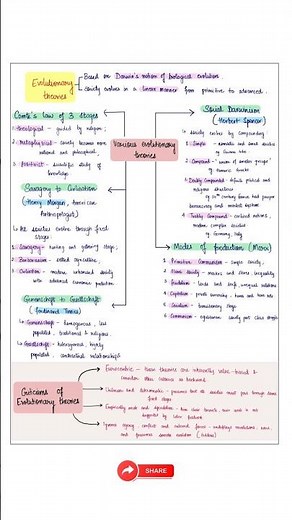 Evolutionary theories
- Based on Darwin's notion of biological evolution.
- Society evolves in a linear manner from primitive to advanced.
Various evolutionary theories
Comte's law of 3 stages
1. Theological - guided by religion;
2. Metaphysical - society becomes more rational and philosophical;
3. Positivist - scientific study of knowledge
Savagery to Civilisation
(Henry Morgan, American Anthropologist)
All societies evolve through fixed stages -
1. Savagery - hunting and gathering stage;
2. Barbarism - settled agriculture;
3. Civilisation - modern urbanised society with advanced economic production
Gemeinschaft to Gesellschaft
(Ferdinand Tonnies)
Gemeinschaft - homogenous, less populated, traditional & religious
Gesellschaft - heterogenous, highly populated, contractual relationships
Social Darwinism
(Herbert Spencer)
Society evolves by compounding:
1. Simple -
2. Compound - "union of smaller groups"
3. Doubly Compounded - definite political and religious structures
4. Trebly Compounded - civilised nations, modern complex societies
eg Germany, Italy
Modes of production (Marx)
1. Primitive Communism - simple society;
2. Slave society - masters and slaves, inequality
3. Feudalism - lords and serfs, unequal relations
4. Capitalism - private ownership, haves and have nots
5. Socialism - transitionary stage
6. Communism - egalitarian society post class struggle
Criticisms of Evolutionary theories
Eurocentric - these theories are inherently value-biased & consider other nations as backward
Unilinear and deterministic - presumes that all societies must pass through these fixed stages
Empirically weak and speculative -
Ignores agency, conflict and external forces -
SHARE